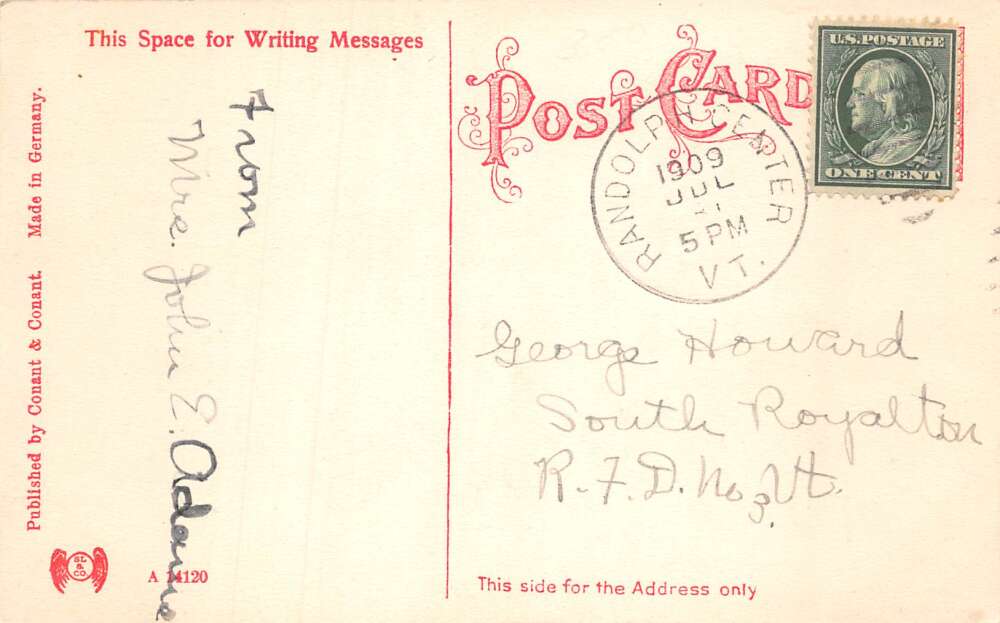 This Space for Writing Messages
POST CARD
U.S. POSTAGE
ONE CENT
RANDOLPH CENTER
1909
JUL
5 PM
VT.
From
Mrs. John E. Adams
George Howard
South Royalton
R.F.D. No 3 Vt.
Made in Germany.
Published by Conant & Conant.
SL & CO.
A 14120
This side for the Address only